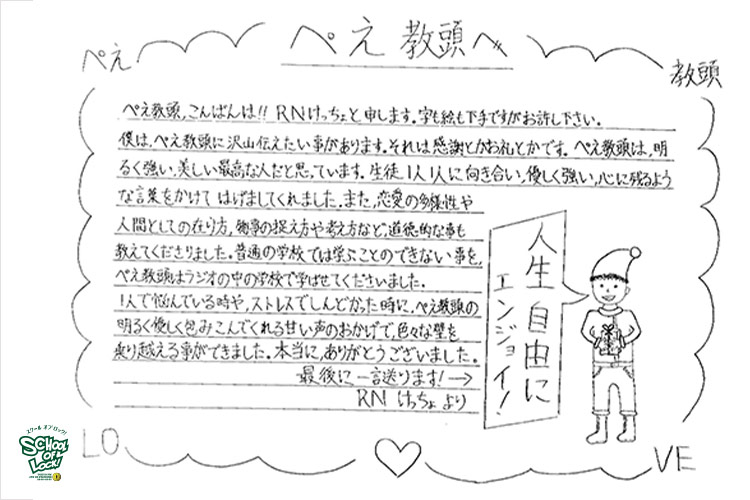 ぺえ教頭へ
ぺえ
教頭
ぺえ教頭、こんばんは!! RNけっちょと申します。字も絵も下手ですがお許し下さい。
僕は、ぺえ教頭に沢山伝えたい事があります。それは感謝とかお礼とかです。ぺえ教頭は、明
るく強い、美しい最高な人だと思っています。生徒1人1人に向き合い、優しく強い、心に残るよう
な言葉をかけて はげましてくれました。また、恋愛の多様性や
人間としての在り方、物事の捉え方や考え方など、道徳的な事も
教えてくださりました。普通の学校では学ぶことのできない事を、
ぺえ教頭はラジオの中の学校で学ばせてくださいました。
1人で悩んでいる時や、ストレスでしんどかった時に、ぺえ教頭の
明るく優しく包みこんでくれる甘い声のおかげで、色々な壁を
乗り越える事ができました。本当に、ありがとうございました。
最後に一言送ります!→
RN けっちょ より
人生自由に
エンジョイ!
LO
VE
スクール オブ ロック!
SCHOOL
OF
LOCK!